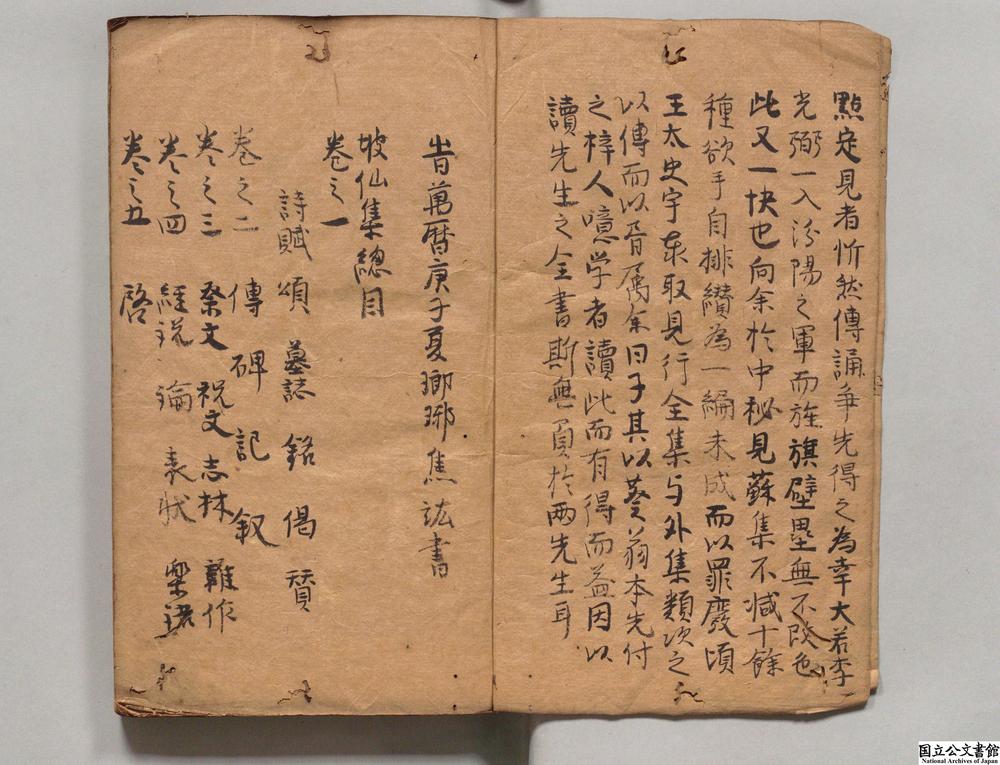 點定見者忻然傳誦爭先得之為幸大若李
光弼一入汾陽之軍而旌旗壁壘無不改色
此又一快也向余於中秘見蘇集不減十餘
種欲手自排纘為一編未成而以罪廢頃
王太史宇泰取見行全集与外集類次之
以傳而以胥属余曰子其以葵翁本先付
之梓人噫学者讀此而有得而益因以
讀先生之全書斯無負於兩先生耳
旹萬曆庚子夏瑯琊焦竑書
坡仙集總目
卷之一
詩賦 頌 墓誌 銘 偈 贊
卷之二 傳 碑 記 叙
卷之三 祭文 祝文 志林 雜作
卷之四 經説 論 表狀
卷之五 啓
国立公文書館
National Archives of Japan